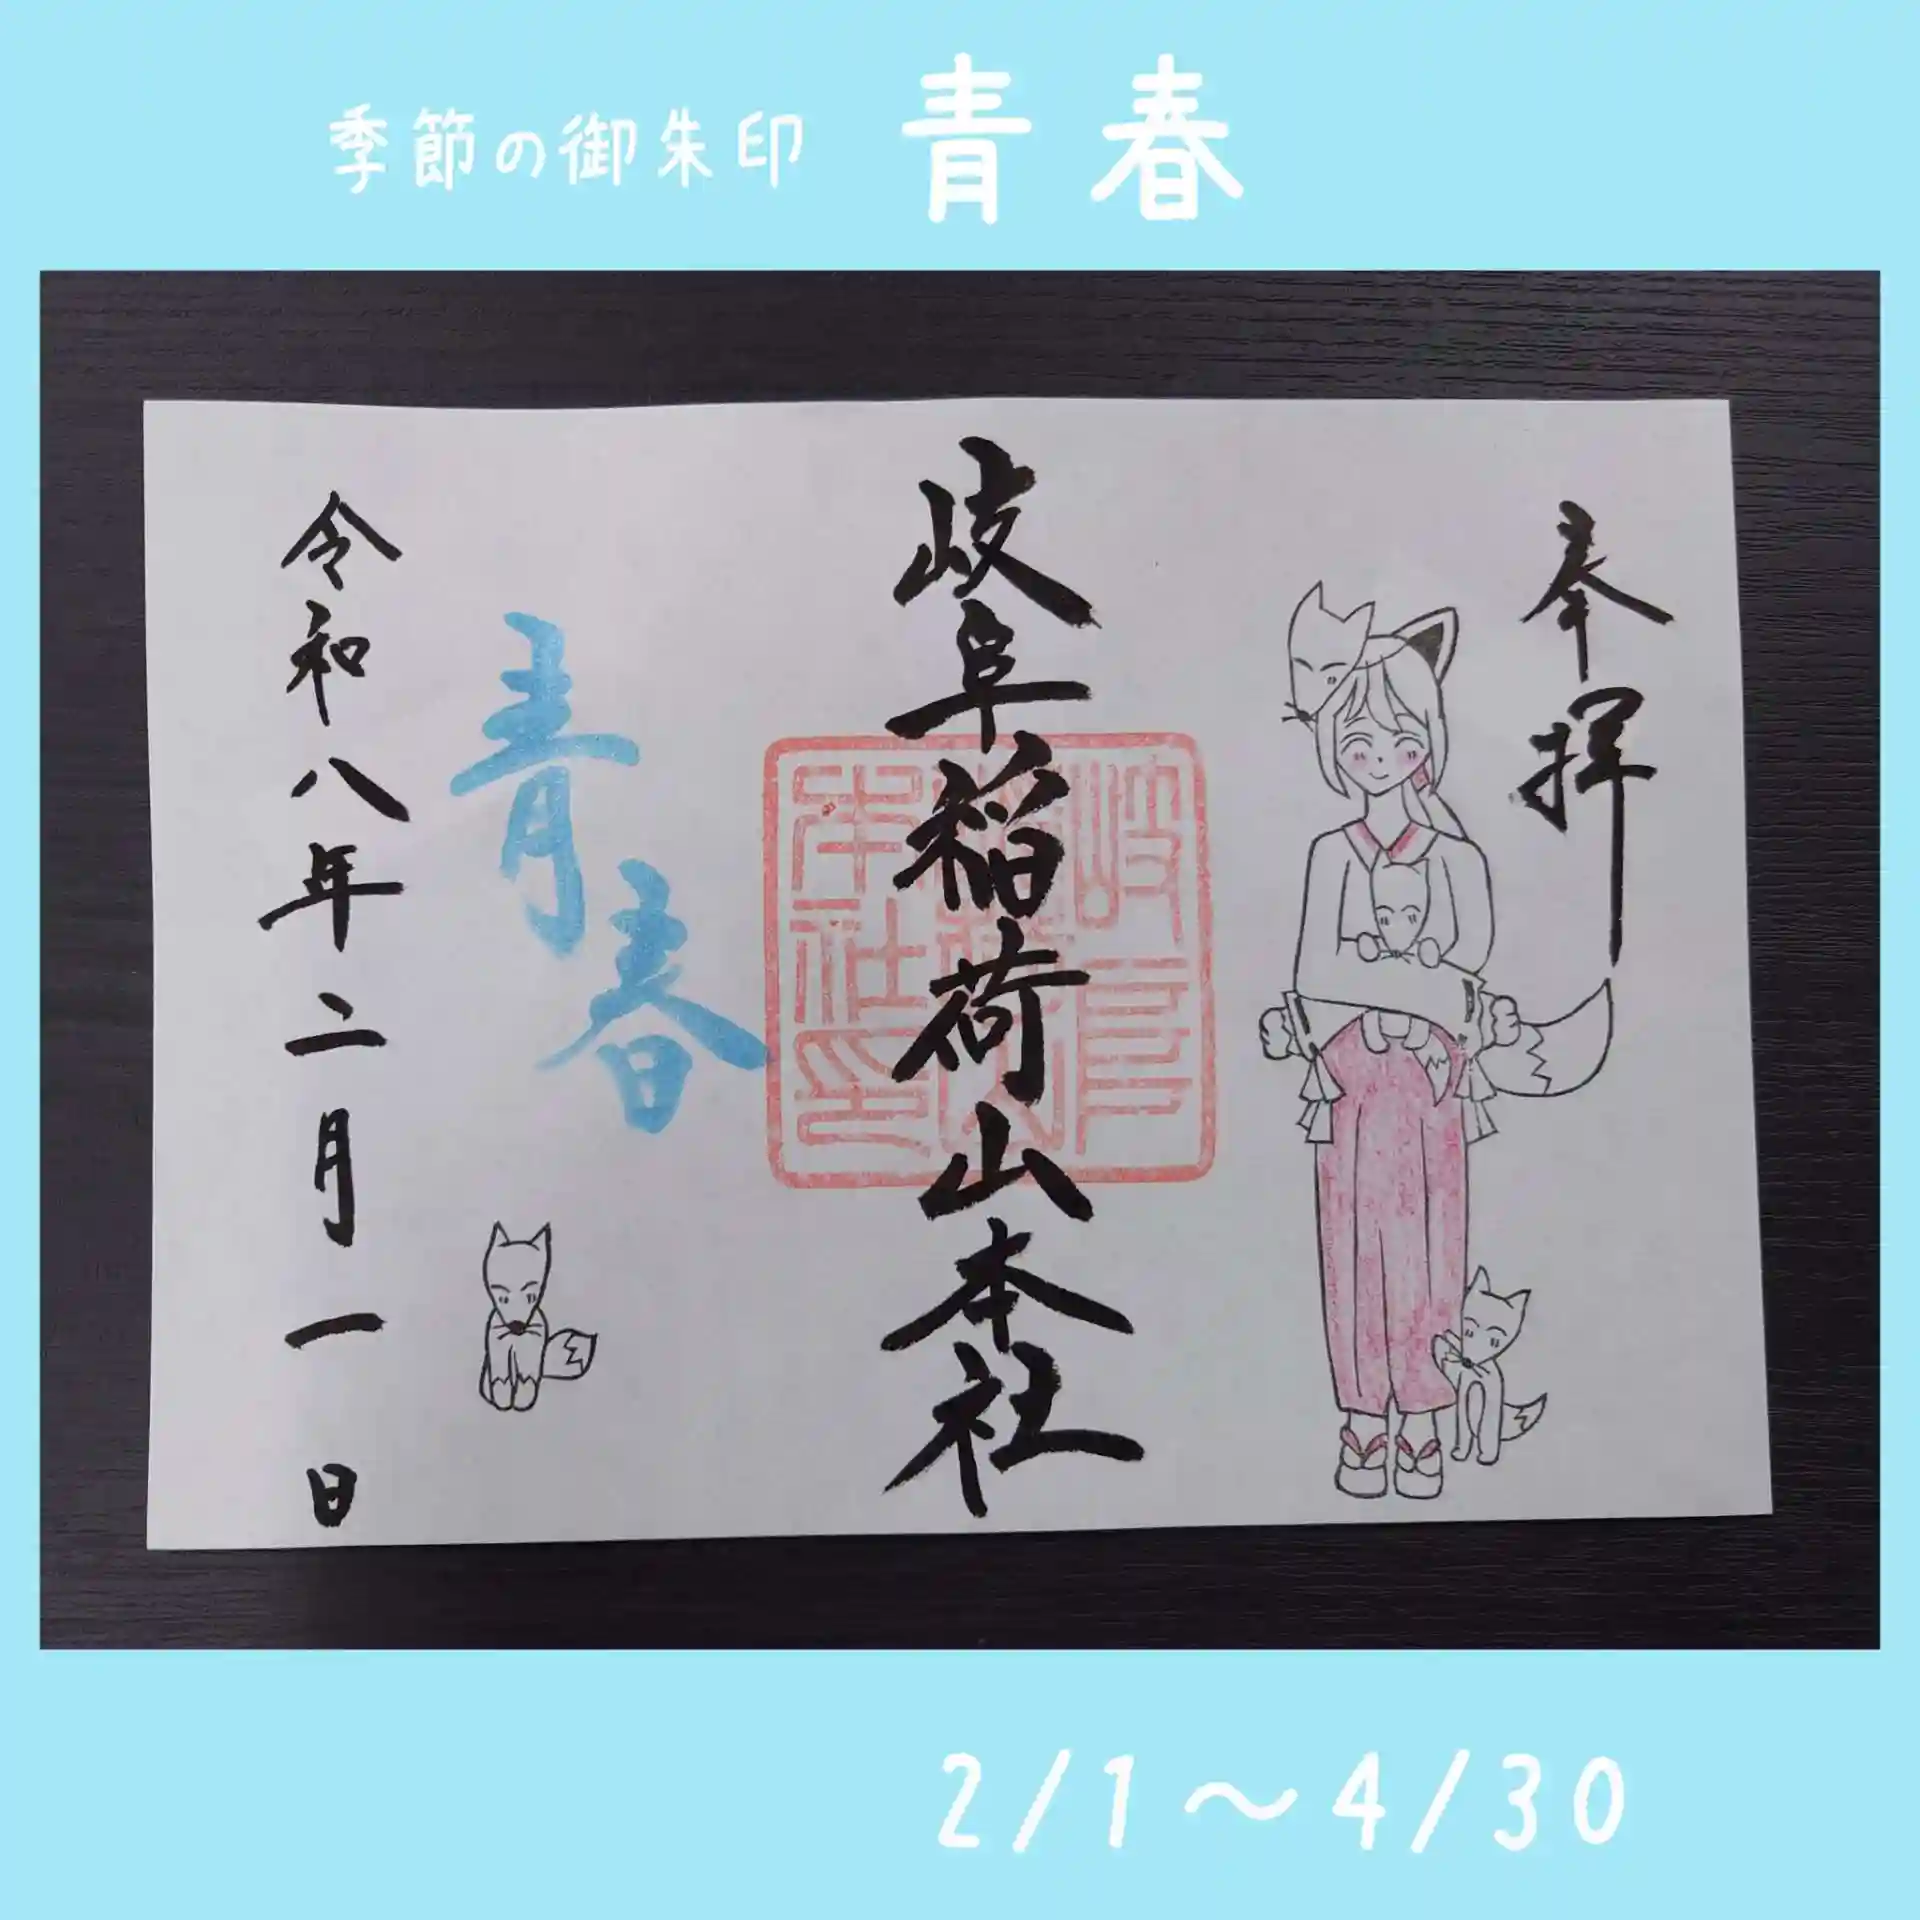 季節の御朱印 青春
奉拝
岐阜稲荷山本社
岐阜稲荷山本社印
青春
令和八年二月一日
2/1～4/30